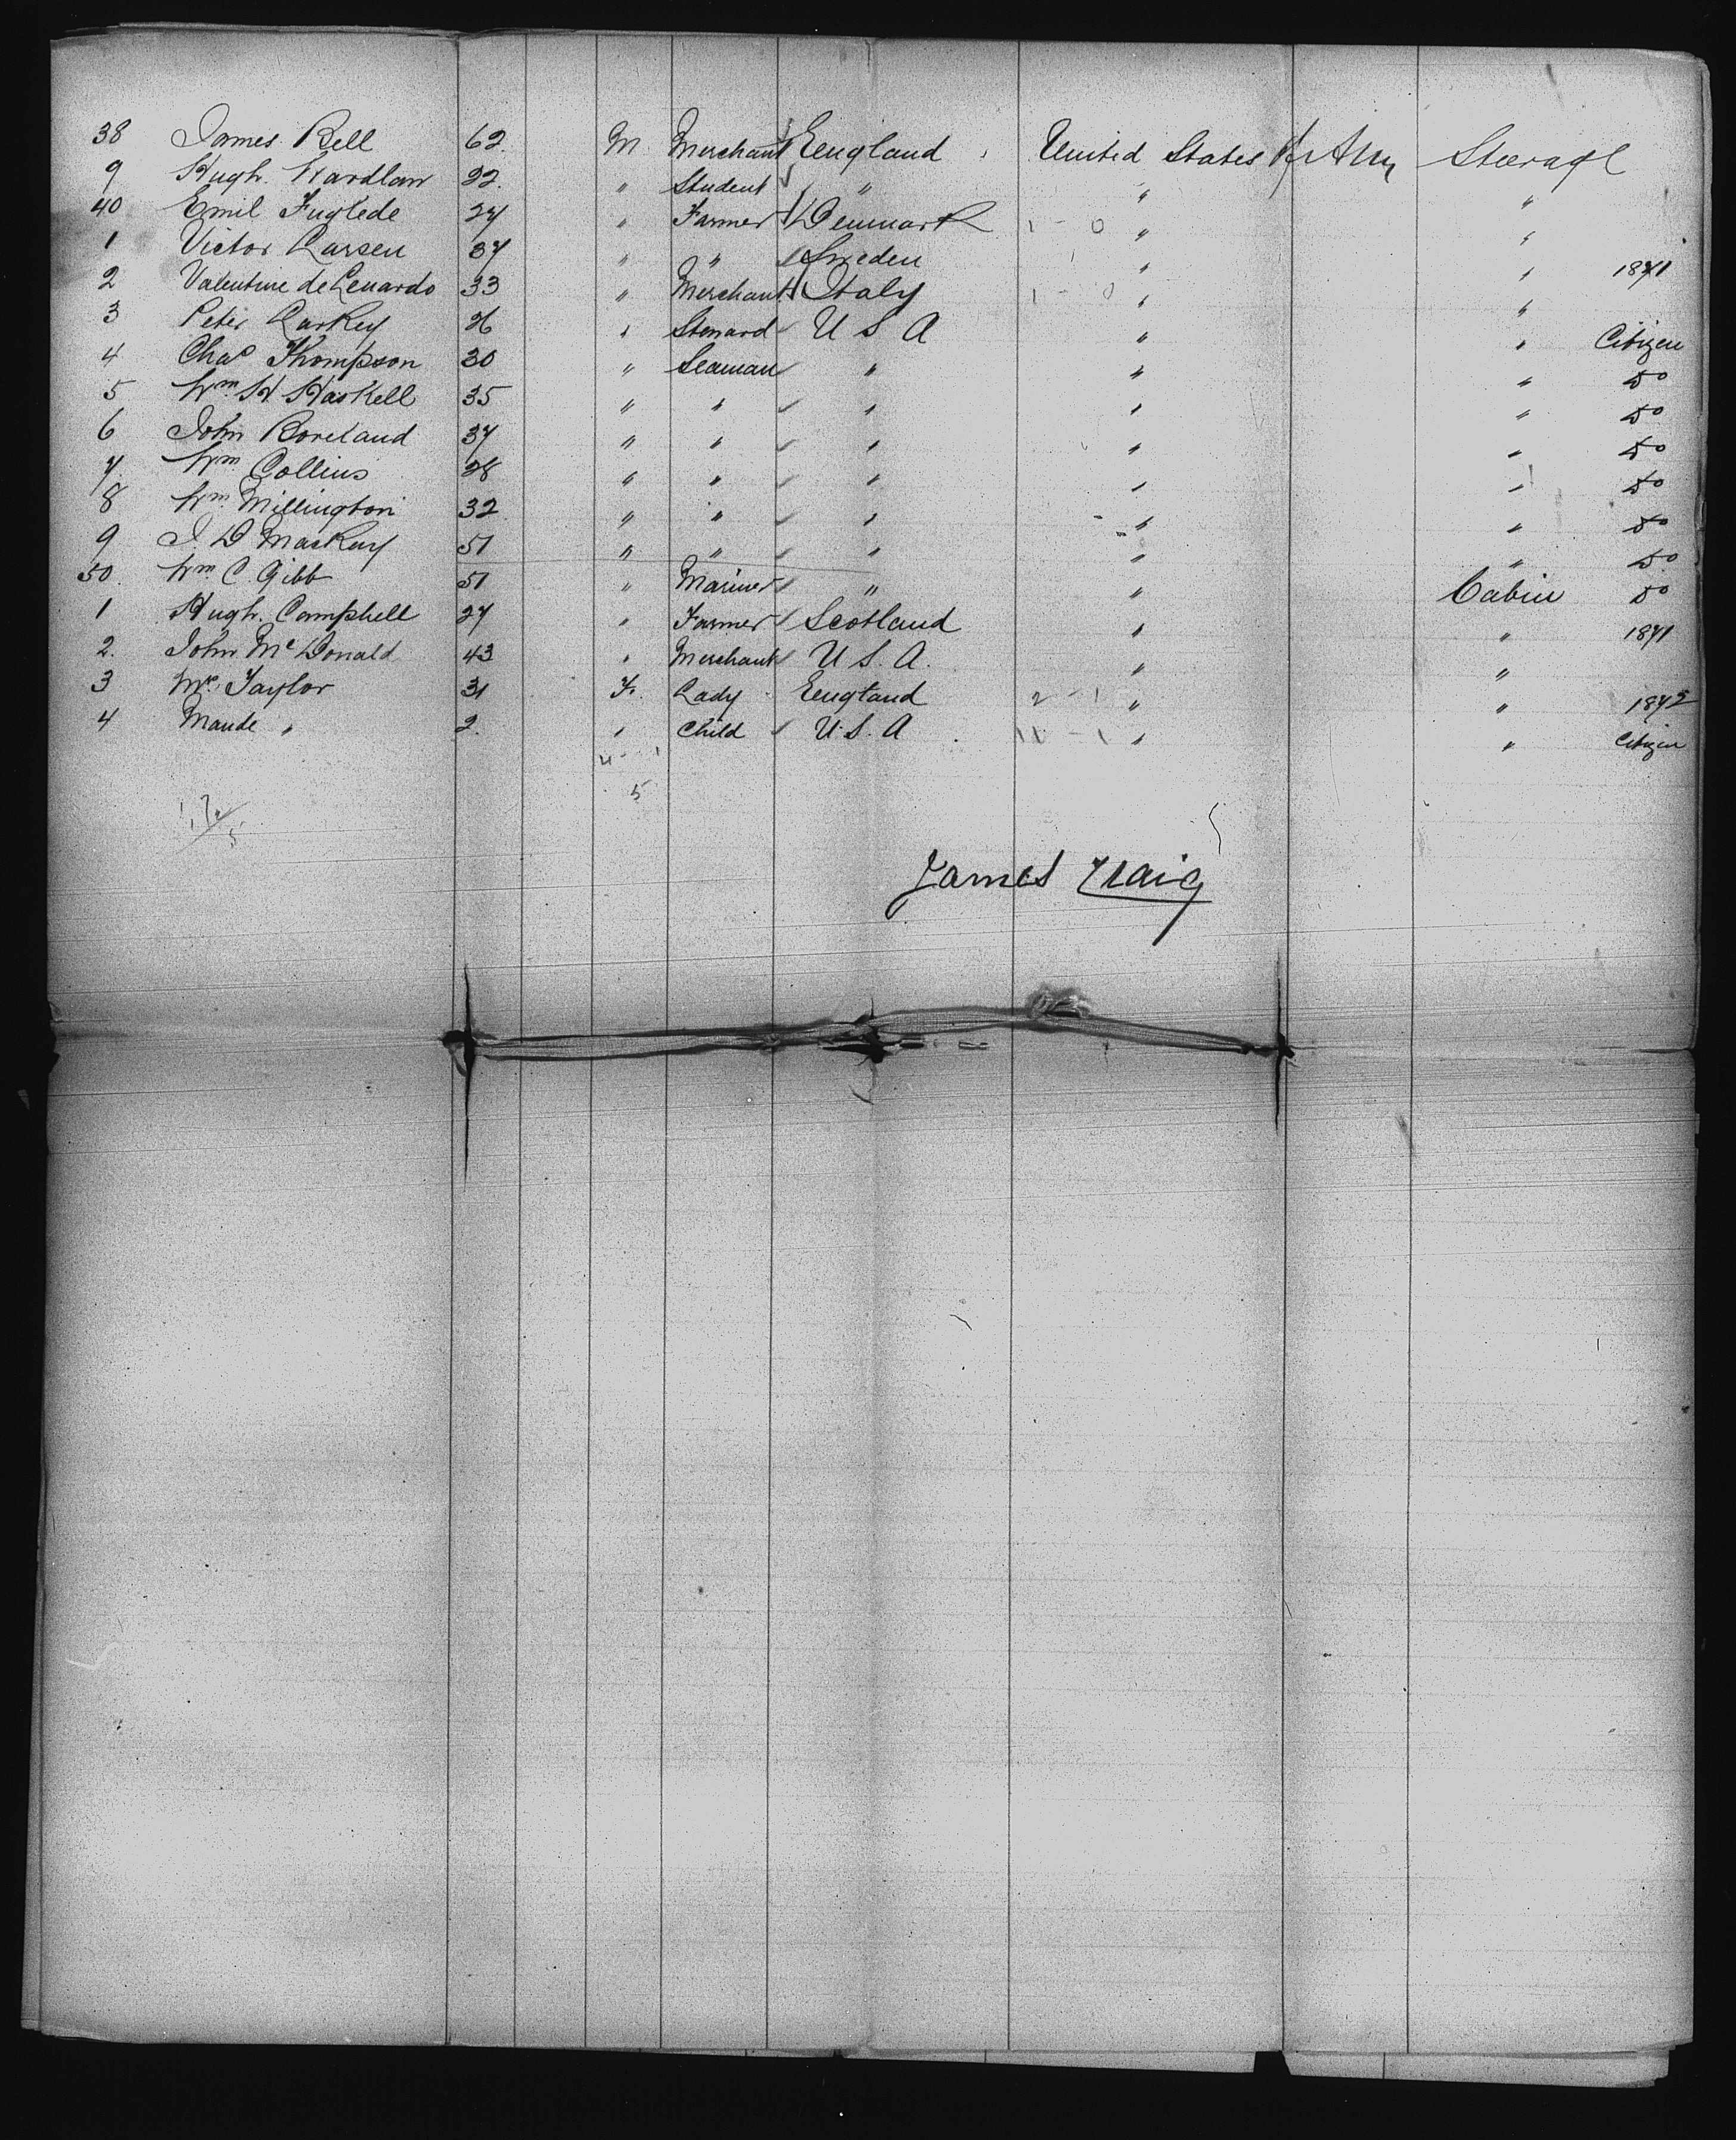 38 James Bell 62. M Merchant England United States of Am Steerage
9 Hugh. Wardlaw 22. " Student " " "
40 Emil Fuglede 27 " Farmer Denmark 1 - 0 " "
1 Victor Larsen 37 " " Sweden " " 1871
2 Valentine de Lenardo 33 " Merchant Italy 1 - 0 " "
3 Peter Larkey 26 " Steward U S A " " Citizen
4 Chas Thompson 30 " Seaman " " " Do
5 Wm. H Haskell 35 " " " " " Do
6 John Boreland 37 " " " " " Do
7 Wm Collins 28 " " " " " Do
8 Wm. Millington 32 " " " " " Do
9 J. D Mackey 51 " " " " " Do
50. Wm. C. Gibb 51 " Mariner " " Cabin Do
1 Hugh. Campbell 27 " Farmer Scotland " " 1871
2. John McDonald 43 " Merchant U S. A. " "
3 Mrs. Taylor 31 F. Lady England 2 - 1 " " 1875
4 Maude " 2. " Child U. S. A " " Citizen
5
James Craig